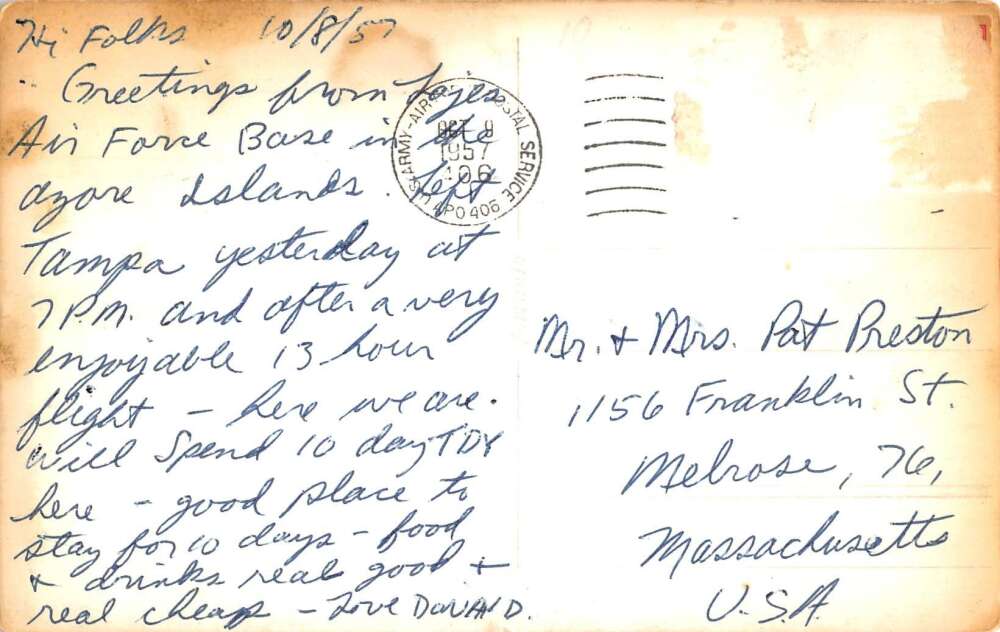 Hi Folks 10/8/57
Greetings from Lajes
Air Force Base in the
azore Islands. Left
Tampa yesterday at
7 P.M. and after a very
enjoyable 13 hour
flight - here we are.
will Spend 10 day TDY
here - good place to
stay for 10 days - food
+ drinks real good +
real cheap - Love DONALD.
ARMY-AIR POSTAL SERVICE
OCT 9
1957
406
APO 406
Mr. + Mrs. Pat Preston
1156 Franklin St.
Melrose, 76,
Massachusetts
U.S.A.